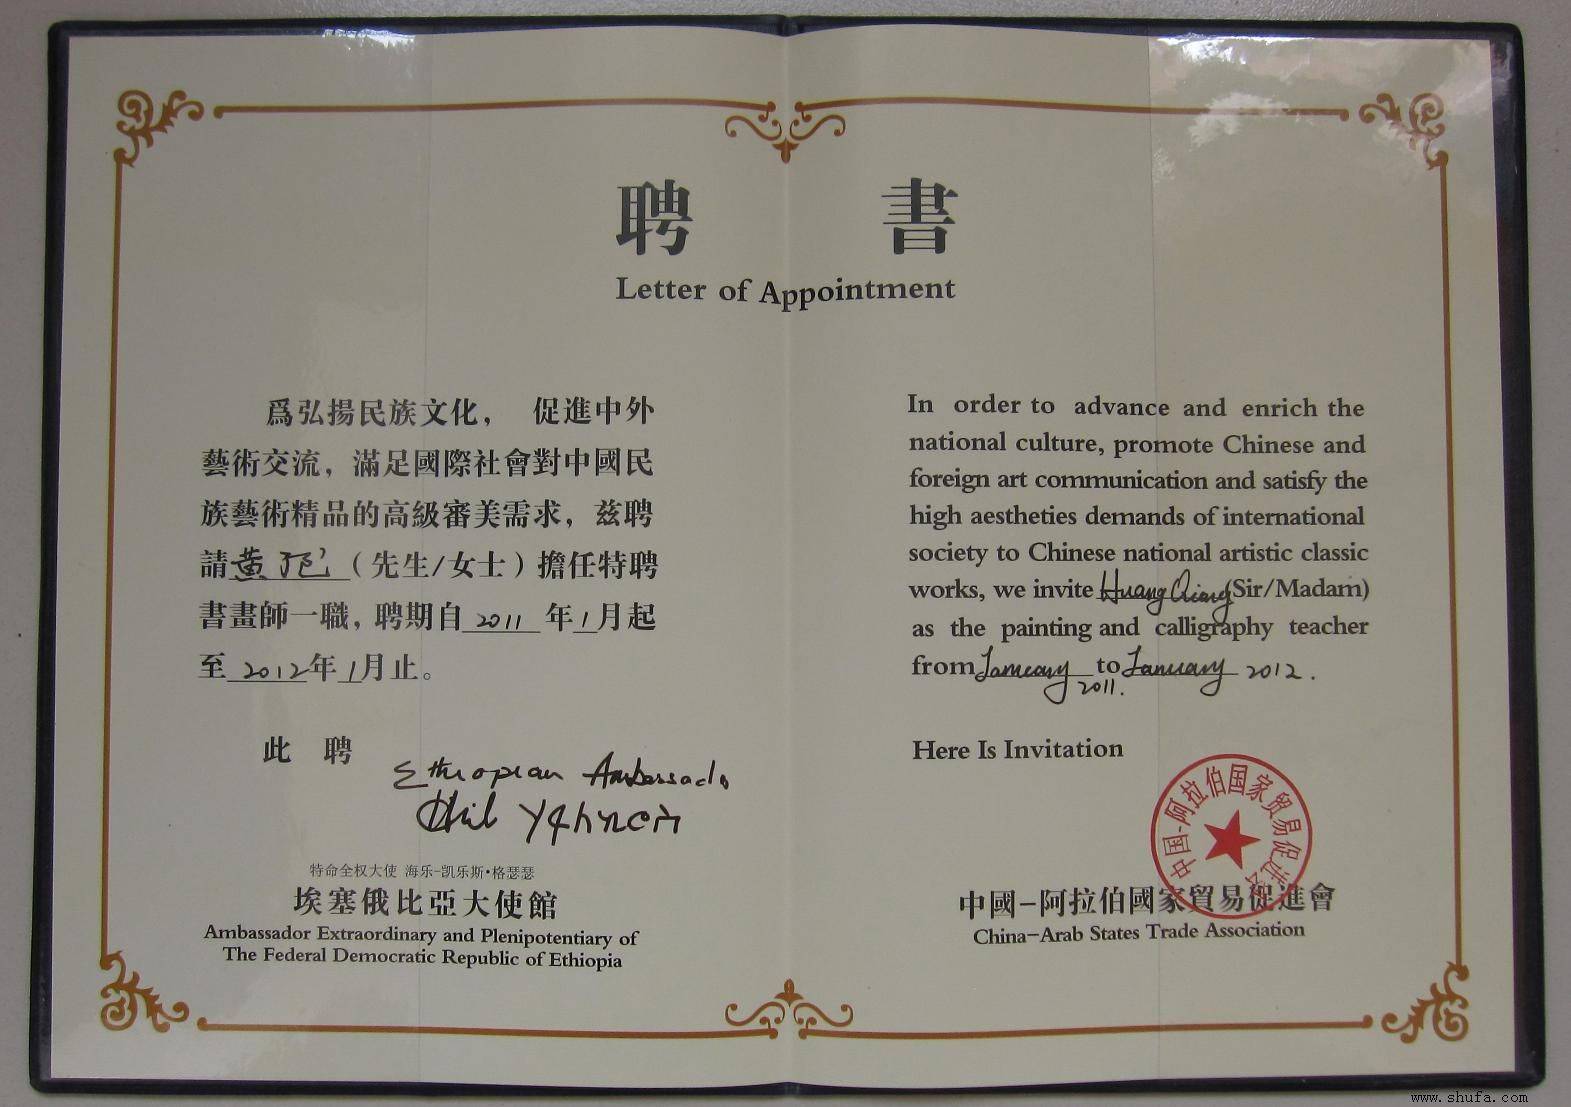 聘 書
Letter of Appointment
爲弘揚民族文化， 促進中外
藝術交流，滿足國際社會對中國民
族藝術精品的高級審美需求，兹聘
請黄（先生/女士）擔任特聘
書畫師一職，聘期自2011年1月起
至2012年1月止。
此 聘
Ethiopian Ambassador
特命全权大使 海乐-凯乐斯·格瑟瑟
埃塞俄比亞大使館
Ambassador Extraordinary and Plenipotentiary of
The Federal Democratic Republic of Ethiopia
In order to advance and enrich the
national culture, promote Chinese and
foreign art communication and satisfy the
high aestheties demands of international
society to Chinese national artistic classic
works, we invite Huang Qiang(Sir/Madam)
as the painting and calligraphy teacher
from January 2011. to January 2012.
Here Is Invitation
中国-阿拉伯国家贸易促进会
中國-阿拉伯國家貿易促進會
China-Arab States Trade Association
www.shufa.com